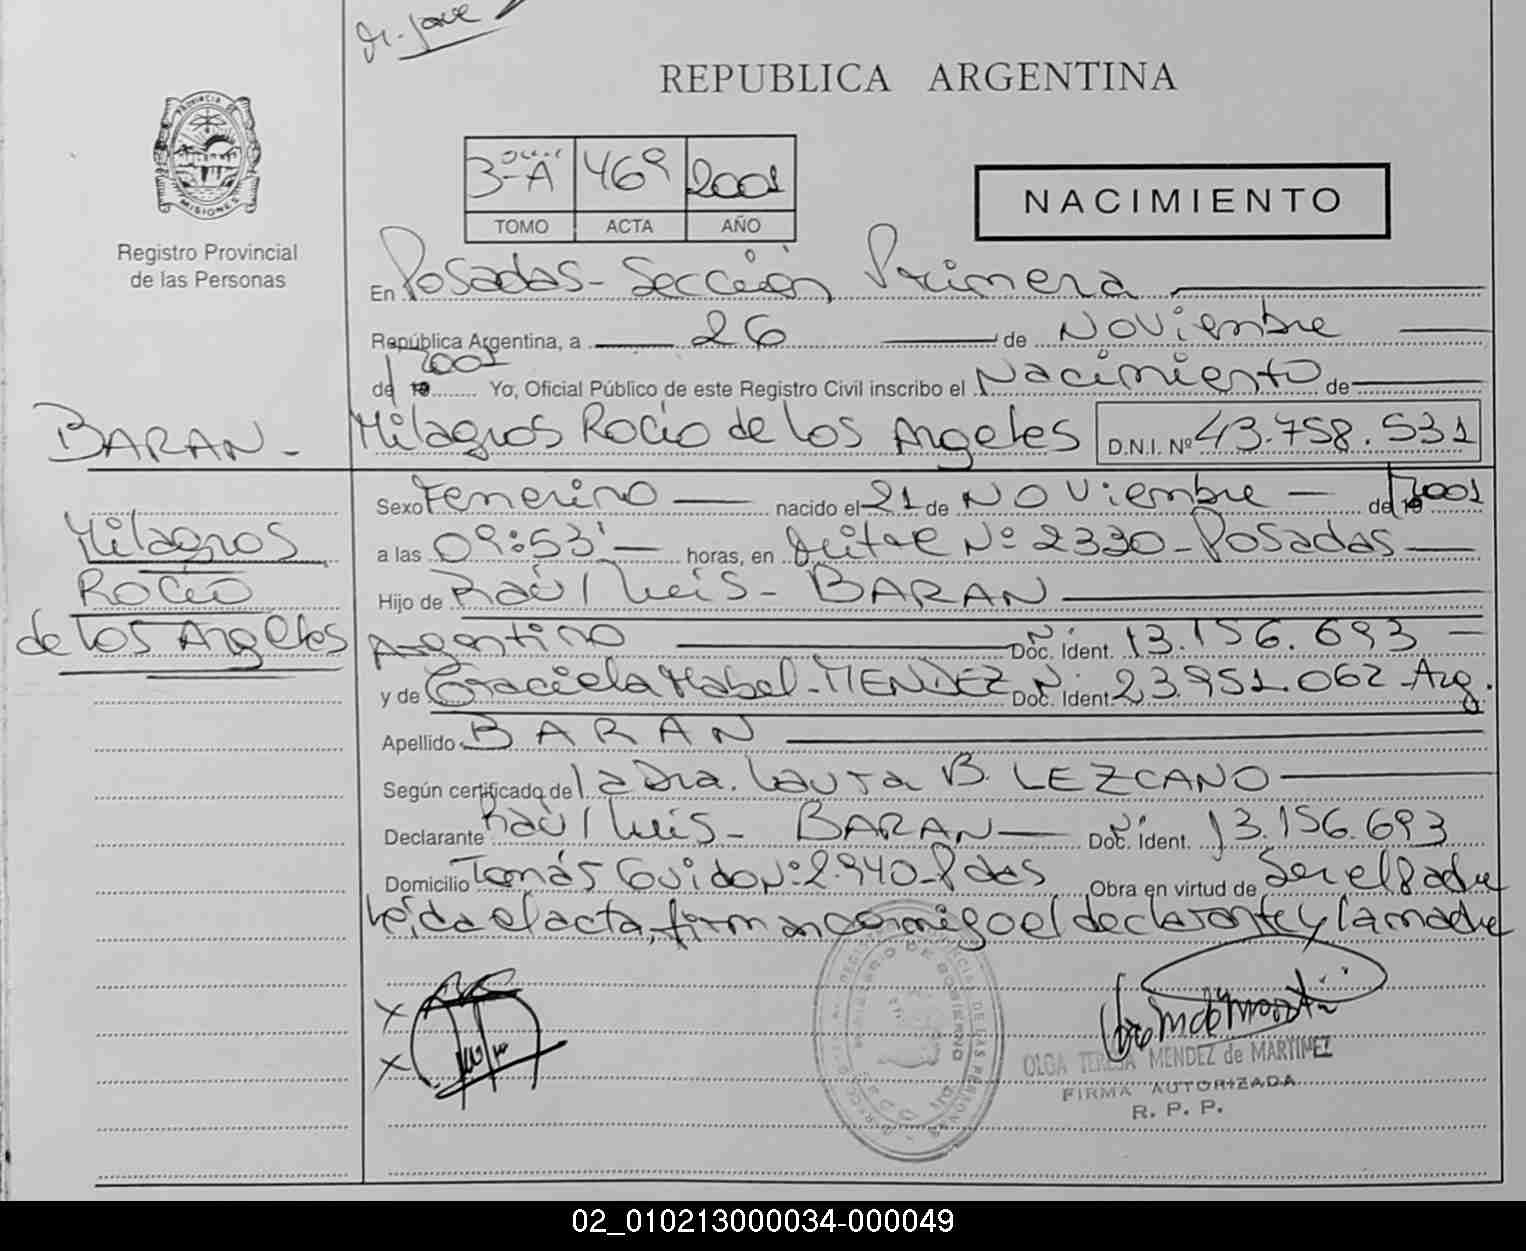 REPUBLICA ARGENTINA
PROVINCIA DE
MISIONES
Registro Provincial
de las Personas
3º A 469 2001
TOMO ACTA AÑO
NACIMIENTO
En Posadas - Sección Primera
República Argentina, a 26 de Noviembre
de 19 2001 Yo, Oficial Público de este Registro Civil inscribo el Nacimiento de
BARAN - Milagros Rocío de los Angeles D.N.I. Nº 43.758.531
Milagros
Rocío
de los Angeles
Sexo Femenino nacido el 21 de Noviembre de 19 2001
a las 09:53' horas, en Nº 2330 - Posadas
Hijo de Raúl Luis - BARAN
Argentino Doc. Ident. Nº 13.156.693
y de Graciela Mabel - MENDEZ Doc. Ident. Nº 23.951.062 - Arg.
Apellido BARAN
Según certificado de la Dra. Laura B. LEZCANO
Declarante Raúl Luis - BARAN Doc. Ident. Nº 13.156.693
Domicilio Tomás Guido Nº 2.940 - Pdas Obra en virtud de Ser el Padre
Leída el acta, firman conmigo el declarante y la madre
X
X
OLGA TERESA MENDEZ de MARTINEZ
FIRMA AUTORIZADA
R. P. P.
02_010213000034-000049